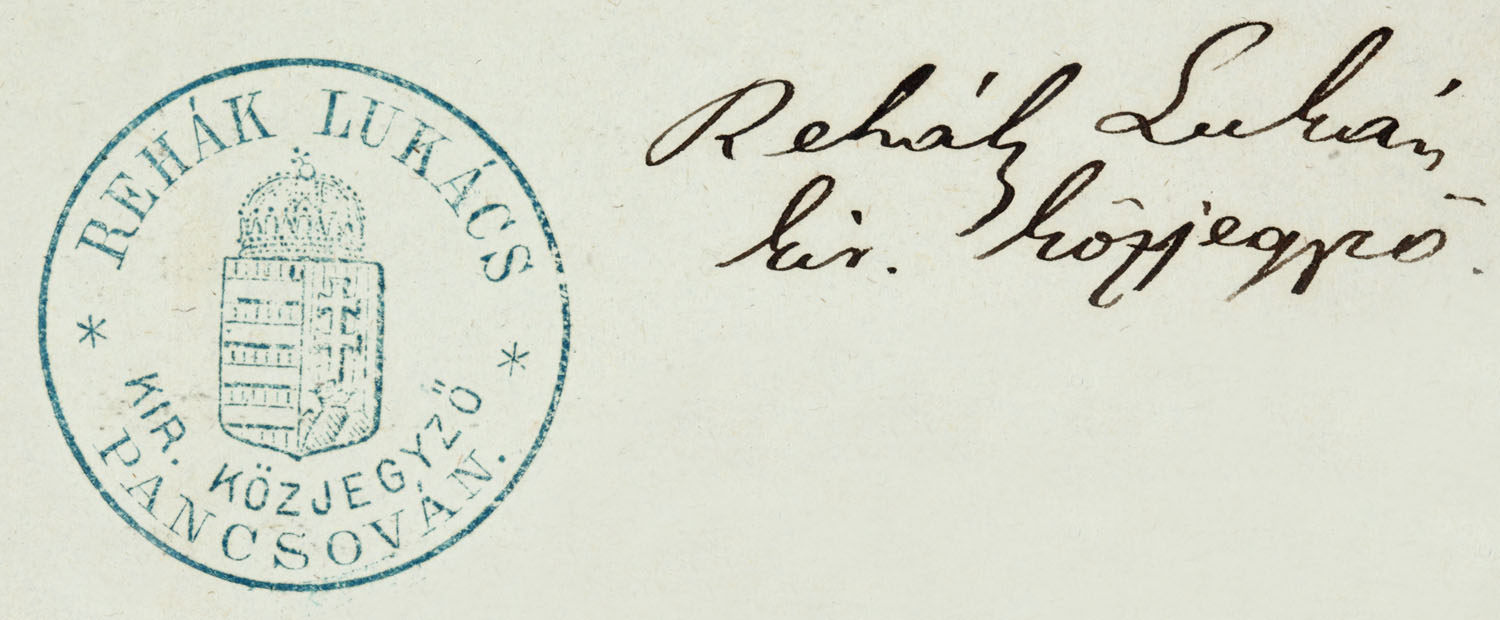 REHÁK LUKÁCS
KIR. KÖZJEGYZŐ
PANCSOVÁN.
Rehák Lukács
kir. közjegyző.